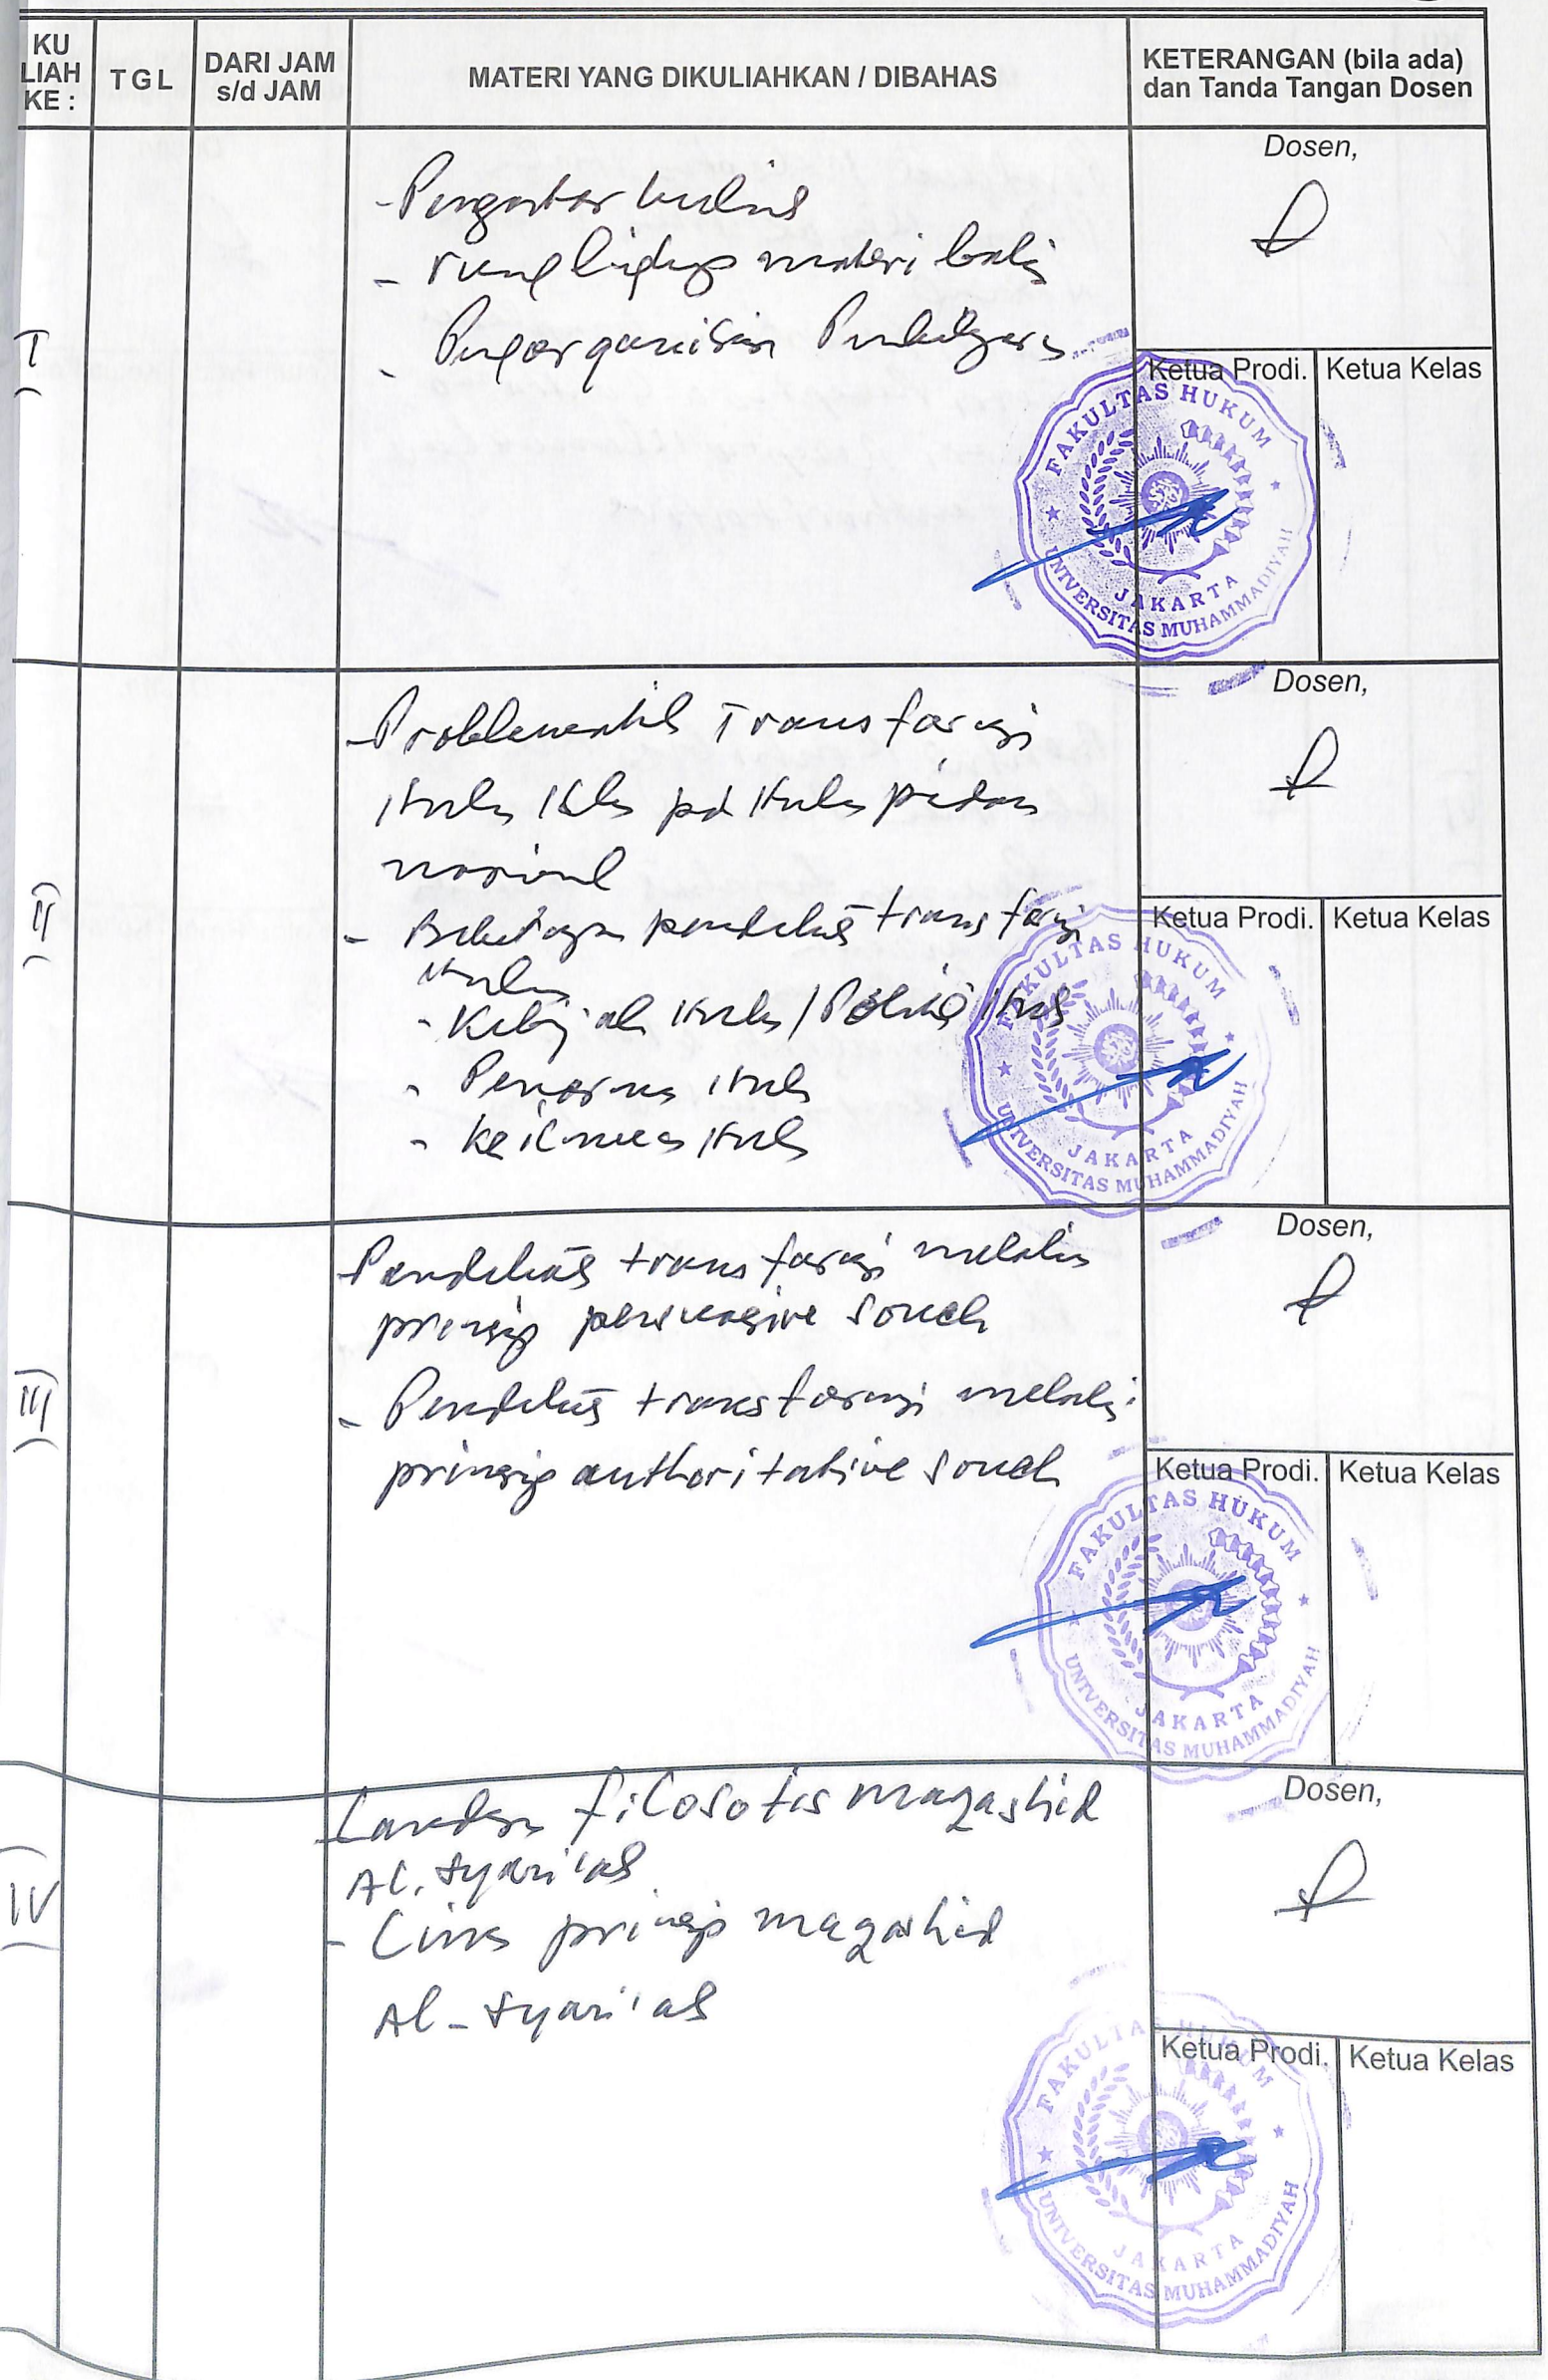 KU LIAH KE :
TGL
DARI JAM s/d JAM
MATERI YANG DIKULIAHKAN / DIBAHAS
KETERANGAN (bila ada) dan Tanda Tangan Dosen
I
- Pengantar kuliah
- materi
-
Dosen,
Ketua Prodi.
Ketua Kelas
FAKULTAS HUKUM
JAKARTA
UNIVERSITAS MUHAMMADIYAH
II
- Problematik Transformasi
Hukum pd Hukum pidana
nasional
- Beberapa pendekatan transformasi
Hukum
- Kebijakan Hukum / Politik Hukum
- Hukum
- keilmuan Hukum
Dosen,
Ketua Prodi.
Ketua Kelas
FAKULTAS HUKUM
JAKARTA
UNIVERSITAS MUHAMMADIYAH
III
- Pendekatan transformasi melalui
prinsip persuasive
- Pendekatan transformasi melalui
prinsip authoritative
Dosen,
Ketua Prodi.
Ketua Kelas
FAKULTAS HUKUM
JAKARTA
UNIVERSITAS MUHAMMADIYAH
IV
- Landasan filosofis maqashid
Al-syari'ah
- Lima prinsip maqashid
Al-syari'ah
Dosen,
Ketua Prodi.
Ketua Kelas
FAKULTAS HUKUM
JAKARTA
UNIVERSITAS MUHAMMADIYAH